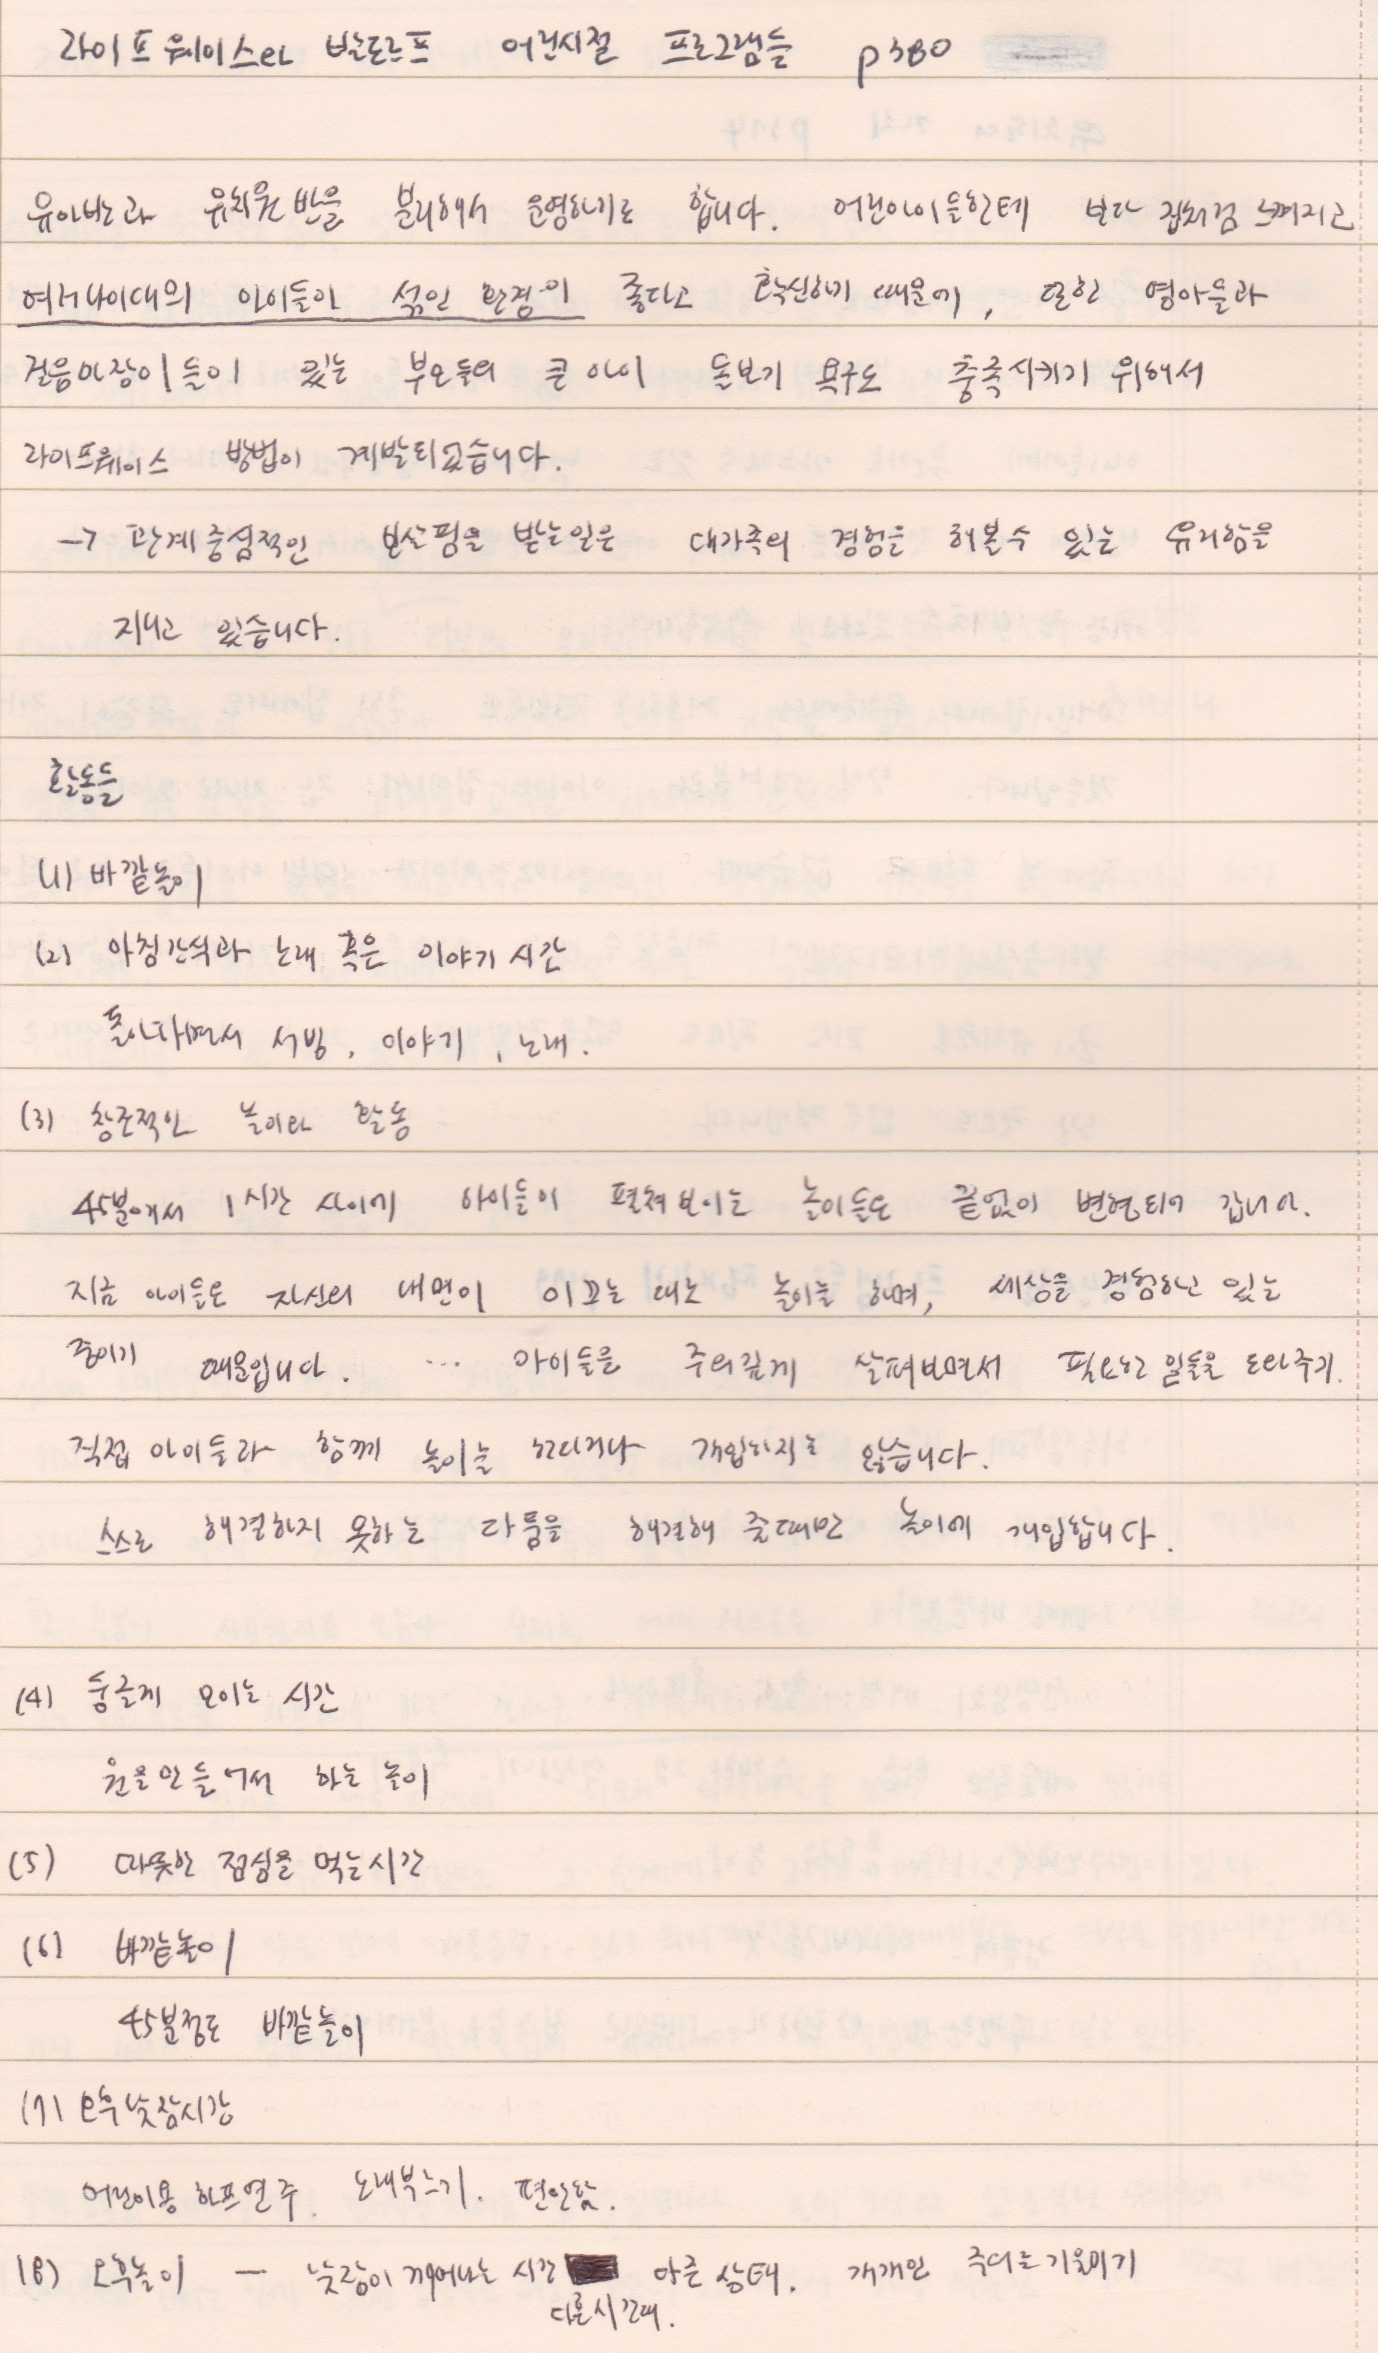 라이프웨이스와 발도르프 어린시절 프로그램들 p380
유아반과 유치원반을 분리해서 운영하기로 합니다. 어린아이들한테 보다 집처럼 느껴지고
여러나이대의 아이들이 섞인 환경이 좋다고 확신하기 때문에, 또한 영아들과
걸음마장이들이 있는 부모들의 큰 아이 돌보기 욕구도 충족시키기 위해서
라이프웨이스 방법이 계발되었습니다.
→ 관계중심적인 보살핌을 받는일은 대가족의 경험을 해볼수 있는 유리함을
지니고 있습니다.
활동들
(1) 바깥놀이
(2) 아침간식과 노래 혹은 이야기 시간
돌아다니면서 서빙, 이야기, 노래.
(3) 창조적인 놀이와 활동
45분에서 1시간 사이에 아이들이 펼쳐보이는 놀이들은 끝없이 변형되어 갑니다.
지금 아이들은 자신의 내면이 이끄는 대로 놀이를 하며, 세상을 경험하고 있는
중이기 때문입니다. … 아이들을 주의깊게 살펴보면서 필요한 일들을 도와주기.
직접 아이들과 함께 놀이를 한다거나 개입하지는 않습니다.
스스로 해결하지 못하는 다툼을 해결해 줄때만 놀이에 개입합니다.
(4) 둥글게 모이는 시간
원을 만들어서 하는 놀이
(5) 따뜻한 점심을 먹는시간
(6) 바깥놀이
45분정도 바깥놀이
(7) 오후낮잠시간
어린이용 하프연주. 노래부르기. 편안함.
(8) 오후놀이 – 낮잠이 깨어나는 시간 다른 상태. 개개인 주의를 기울이기
다른시간대.